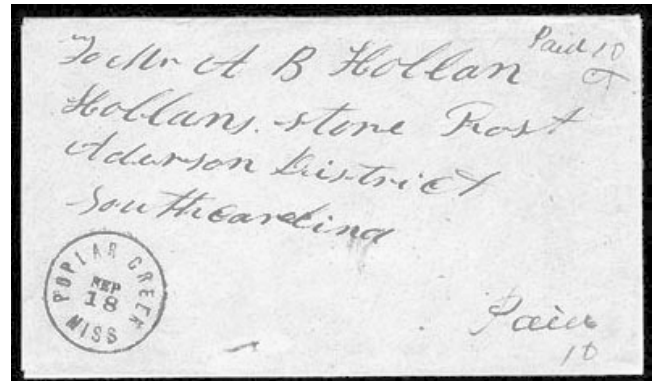 Paid 10
CT
To Mr A B Hollan
Hollans. store Post
Aderson District
South carolina
POPLAR CREEK
SEP
18
MISS
Paid
10